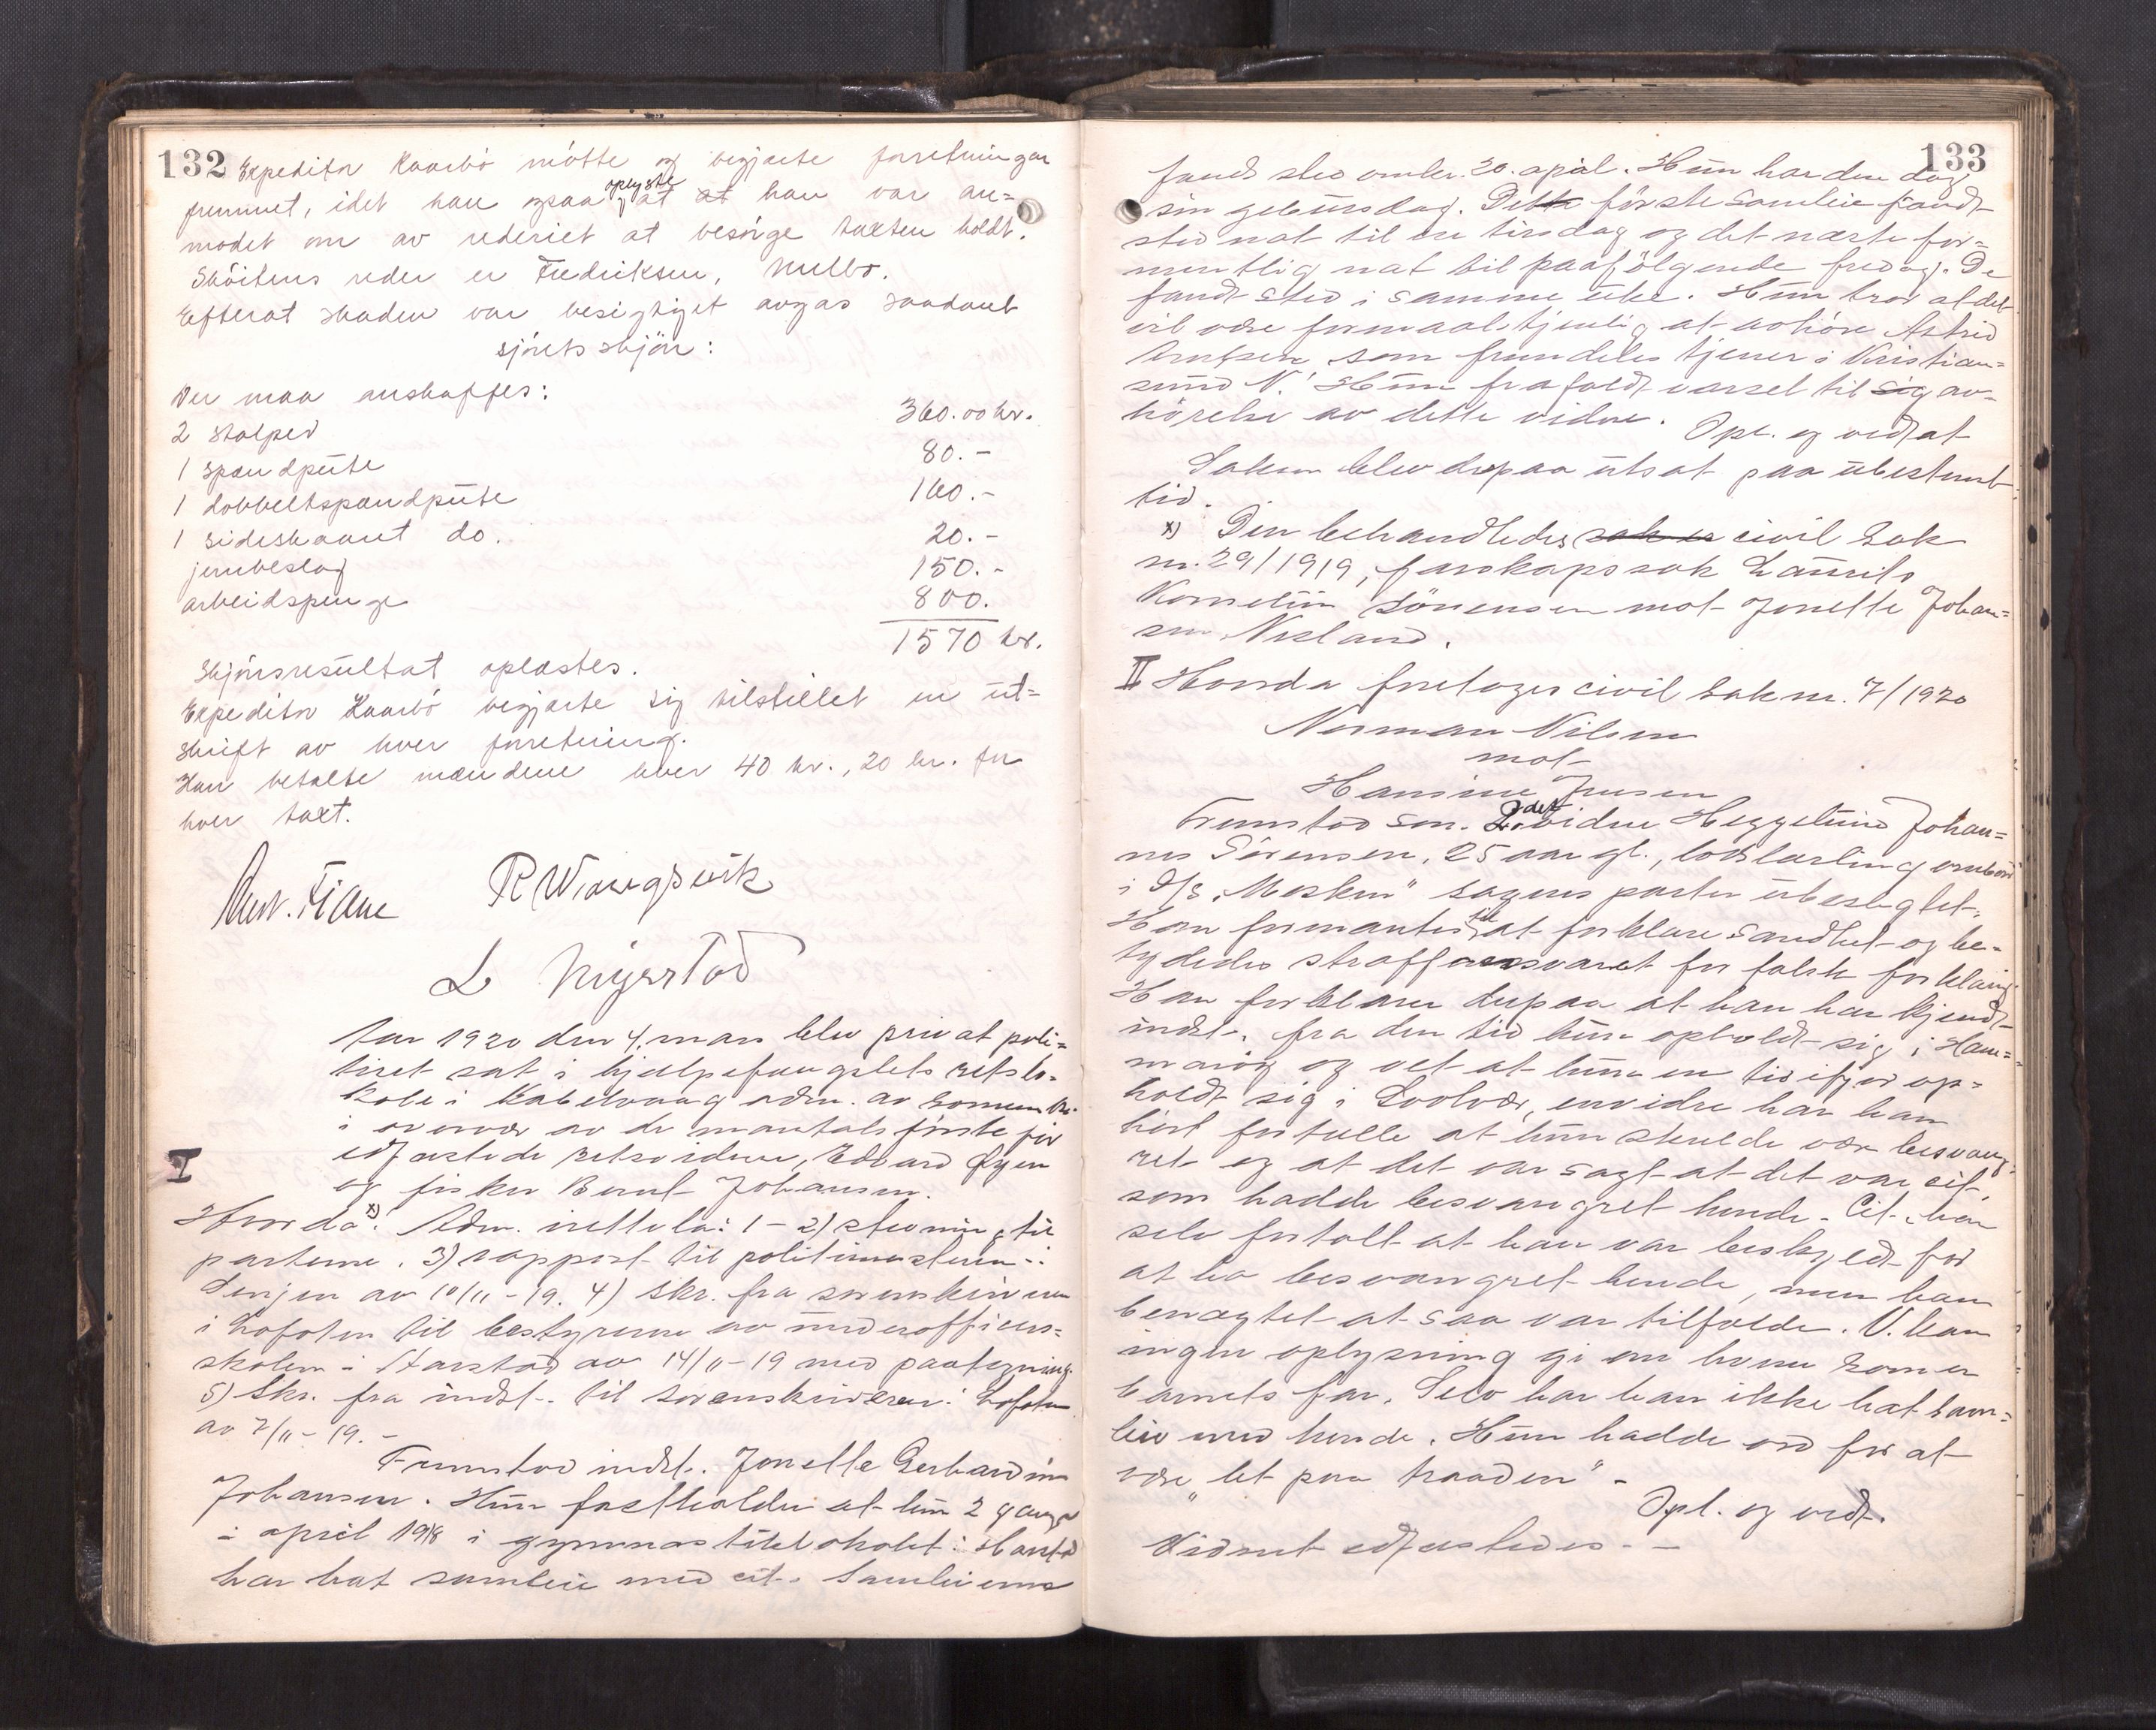 132
Expeditør Kaarbø møtte og begjærte forretningen
fremmet, idet han ogsaa oplyste at at han var an=
modet om av rederiet at besørge taxten holdt.
Skøitens reder er Fredriksen, Melbo.
Efterat skaden var besigtiget avgas saadant
sjøretsskjøn:
Der maa anskaffes:
2 stolper 360.00 kr.
1 spandpüte 80.-
1 dobbeltspandpüte 160.-
1 sideskaaret do. 20.-
jernbeslag 150.-
arbeidspenge 800.
1570 kr.
Skjønsresültat oplæstes.
Expeditør Kaarbø begjærte sig tilstillet en üt=
skrift av hver forretning.
Han betalte mændene hver 40 kr., 20 kr. for
hver taxt.
R Wiangsvik
Aar 1920 den 4. mars blev privat poli=
tiret sat i hjælpefængslets retslo=
kale i Kabelvaag adm. av
i overvær av de mantalsførte før
edfæstede retsvidner, Edvard
og fisker Bernt Johansen.
I
Hvorda x): Adm. irettela: 1-2) stevning til
parterne. 3) rapport til politimesteren i
Senjen av 10/11-19. 4) Skr. fra sorenskriveren
i Lofoten til bestyreren av ünderofficers=
skolen i Harstad av 14/11-19 med paategning.
5) Skr. fra indst. til sorenskriveren i Lofoten
av 7/11-19.-
Fremstod indst. Jonette Gerhardine
Johansen. Hün fastholder at hün 2 ganger
i april 1918 i gymnastiklokalet i Harstad
har hat samleie med cit. Samleierne
133
fandt sted omkr. 20. april. Hün har den dag
sin gebürsdag. Dette første samleie fandt
sted nat til en tirsdag og det næste for=
mentlig nat til paafølgende fredag. De
fandt sted i samme üke. Hün tror at det
vil være formaalstjenlig at avhøre Astrid
som fremdeles tjener i Kristian=
sünd N. Hün frafaldt varsel til sig av=
hørelse av dette vidne.
Opl. og vedtat
Saken blev derpaa ütsat paa übestemt
tid.
x) Den behandledes sak er civil sak
nr. 29/1919, farskapssak Laürits
Kornelius Sörensen mot Jonette Johan=
sen Nesland.
II Hvorda foretoges civil sak nr. 7/1920
Norman Nilsen
mot
Hansine Jensen
Fremstod som 2det vidne Heggelünd Johan=
nes Sörensen, 25 aar gl., lodslærling ombord
i D/S „Mosken" sagens parter übeslegtet.
Han formantes til at forklare sandhet og be=
tydedes straffeansvaret for falsk forklaring.
Han forklarer derpaa at han har kjendt
indst. fra den tid hün opholdt sig i Ham=
marøy og vet at hün en tid ifjor op=
holdt sig i Svolvær, envidre har han
hørt fortælle at hün skulde være besvang=
ret og at det var sagt at det var cit.
som hadde besvangret hende. Cit. har
selv fortalt at han var beskyldt for
at ha besvangret hende, men han
benægtet at saa var tilfælde. V. kan
ingen oplysning gi om hvem som er
barnets far. Selv har han ikke hat sam=
leie med hende. Hün hadde ord for at
være „let paa traaden" -
Opl. og vedt.
Vidnet edfæstedes. -